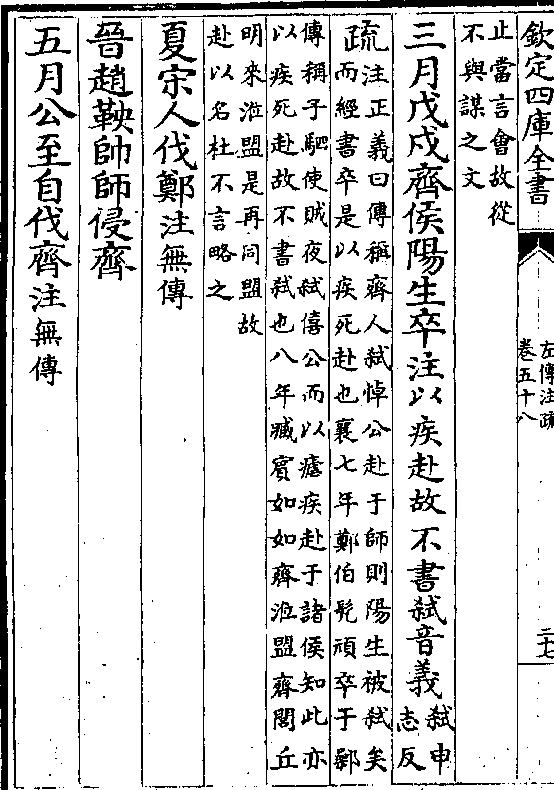 欽定四庫全書
左傳注疏
卷五十八
二七
止當言會故從
不與謀之文
三月戊戌齊侯陽生卒注以疾赴故不書弑音義弑申
志反
疏注正義曰傳稱齊人弑悼公赴于師則陽生被弑矣
而經書卒是以疾死赴也襄七年鄭伯髠頑卒于鄵
傳稱子駟使賊夜弑僖公而以瘧疾赴于諸侯知此亦
以疾死赴故不書弑也八年臧賓如如齊涖盟齊閭丘
明來涖盟是再同盟故
赴以名杜不言略之
夏宋人伐鄭注無傳
晉趙鞅帥師侵齊
五月公至自伐齊注無傳